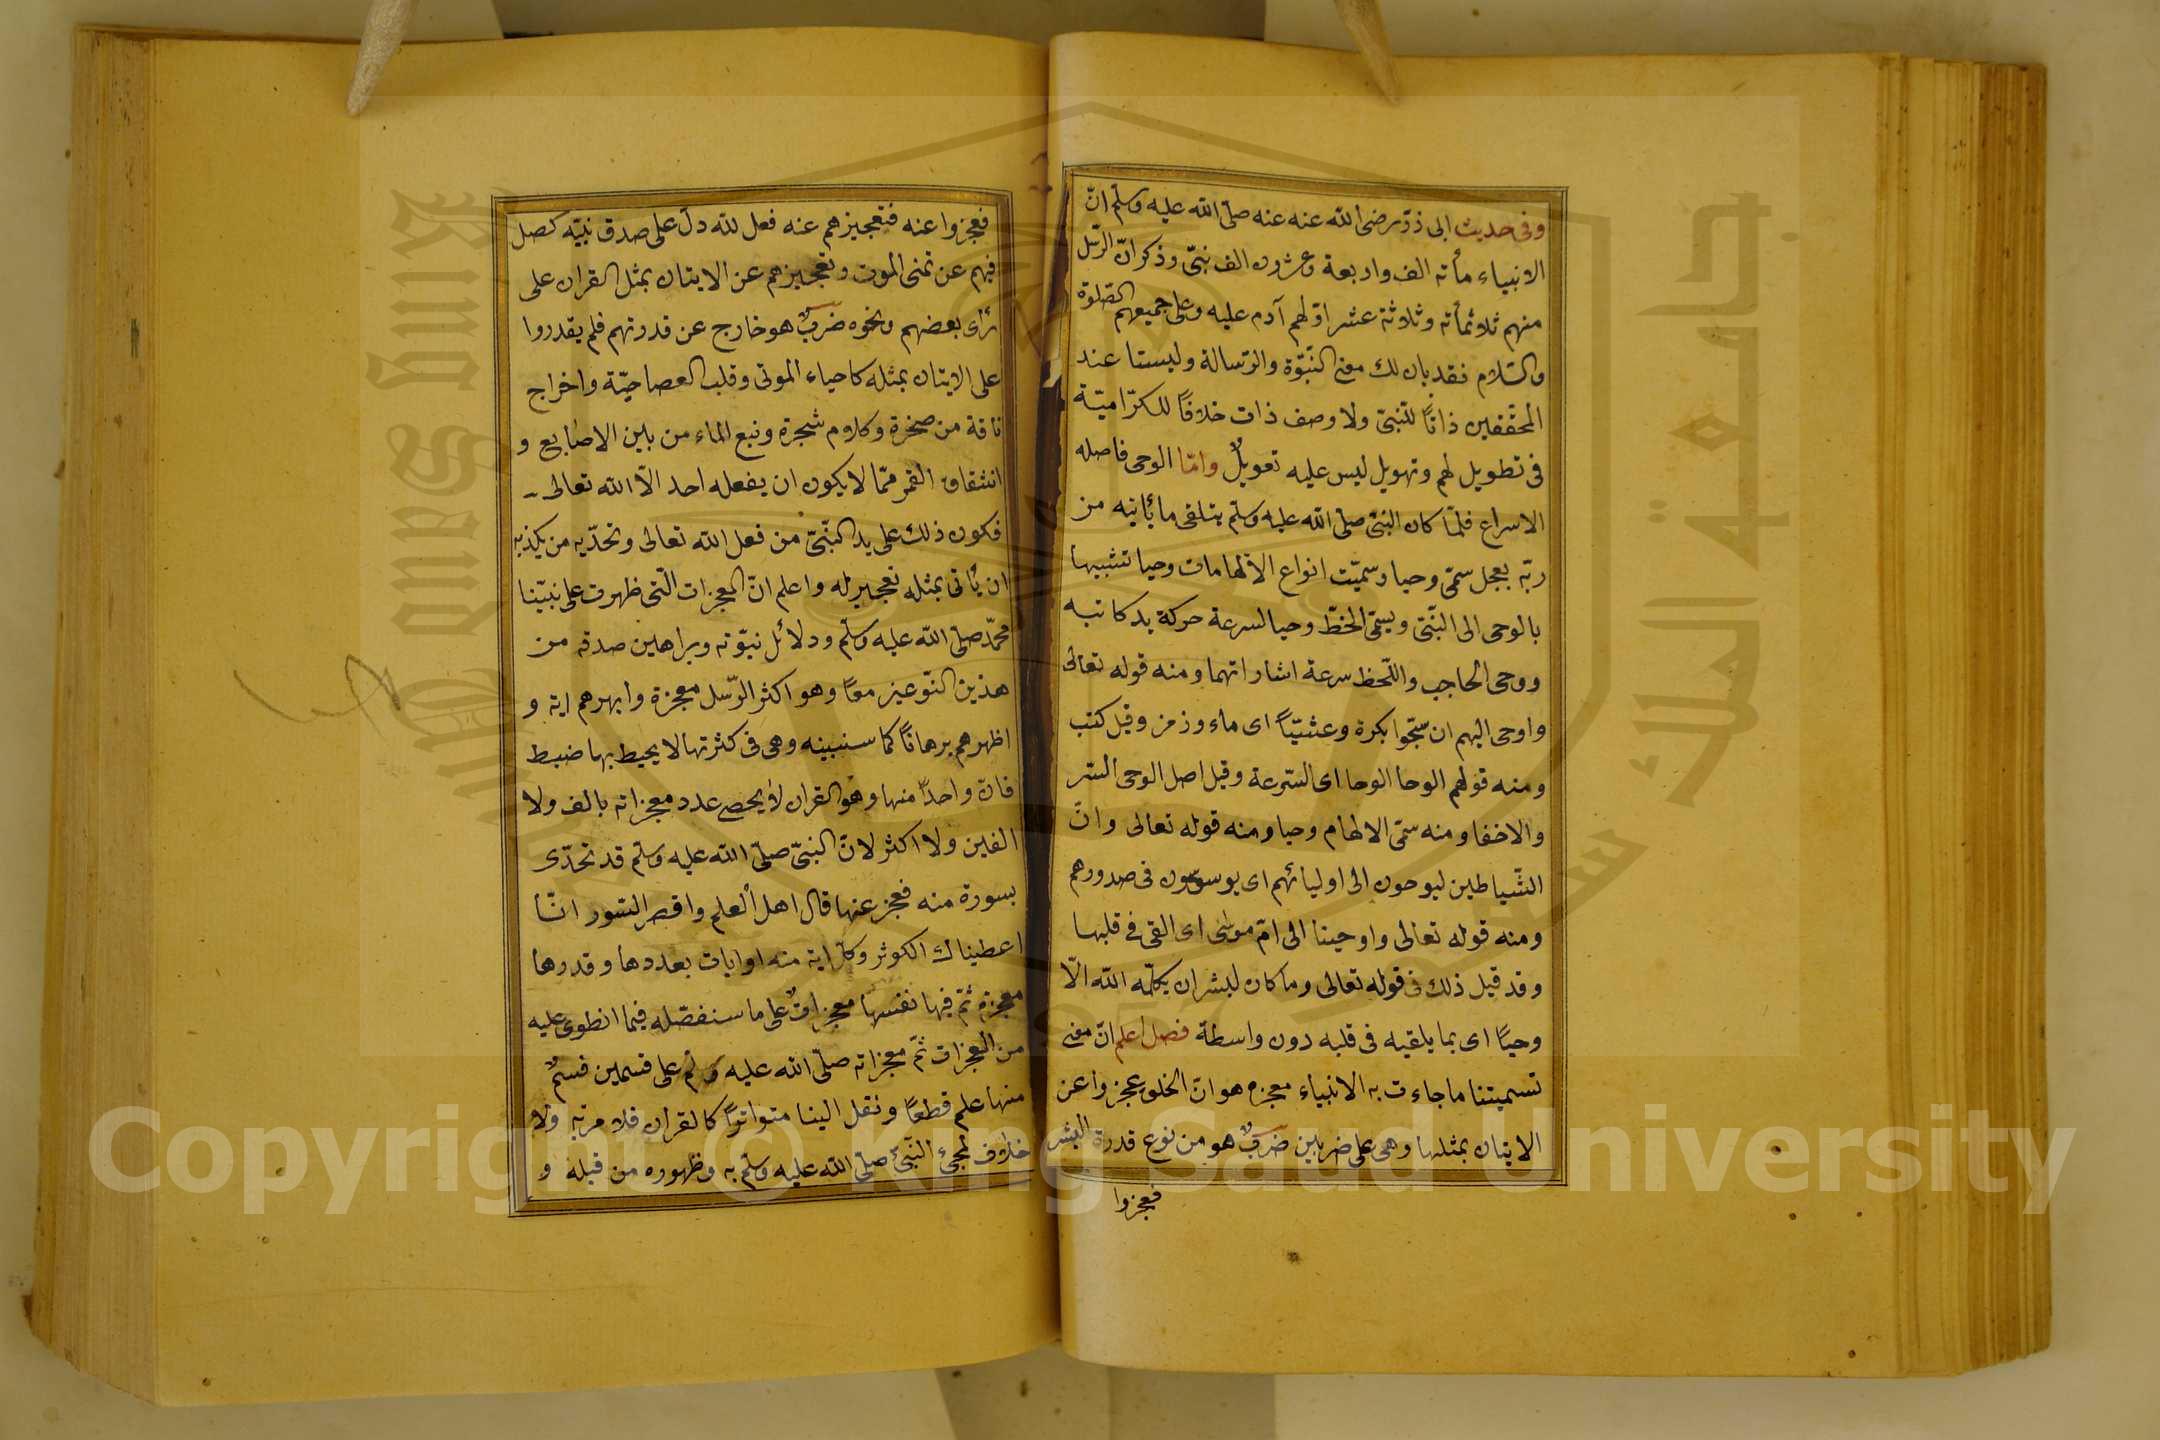 وفى حديث ابى ذرّ رضى الله عنه عنه صلّى الله عليه وسلّم انّ
الانبياء مأته الف واربعة وعشرون الف نبىّ وذكر انّ الرّسل
منهم ثلاثمأته وثلاثة عشر اوّلهم آدم عليه وعلى جميعهم الصّلوة
والسّلام فقد بان لك معنى النّبوّة والرّسالة وليستا عند
المحقّقين ذاتًا للنّبىّ ولا وصف ذات خلافًا للكرّاميّة
فى تطويل لهم وتهويل ليس عليه تعويلٌ وامّا الوحى فاصله
الاسراع فلمّا كان النبىّ صلّى الله عليه وسلّم يتلقى ما يأتيه من
ربّه بعجل سمّى وحيا وسميّت انواع الالهامات وحيا تشبيها
بالوحى الى النّبىّ ويسمّى الخطّ وحيا لسرعة حركة يد كاتبه
ووحى الحاجب واللّحظ سرعة اشاراتهما ومنه قوله تعالى
واوحى اليهم ان سبّحوا بكرة وعشيّاً اى ماء ورمز وقيل كتب
ومنه قولهم الوحا الوحا اى السّرعة وقيل اصل الوحى السّر
والاخفا ومنه سمّى الالهام وحيا ومنه قوله تعالى وانّ
الشّياطين ليوحون الى اوليائهم اى يوسوسون فى صدورهم
ومنه قوله تعالى واوحينا الى امّ موسى اى القى فى قلبها
وقد قيل ذلك فى قوله تعالى وما كان لبشر ان يكلّمه الله الّا
وحيًا اى بما يلقيه فى قلبه دون واسطة فصل اعلم انّ معنى
تسميتنا ما جاءت به الانبياء معجزه هو انّ الخلق عجزوا عن
الايتان بمثلها وهى على ضربين ضربٌ هو من نوع قدرة البشر
فعجزوا
فعجزوا عنه فتعجيزهم عنه فعل لله دلّ على صدق نبيّه كصل
فهم عن تمنى الموت وتعجيزهم عن الايتان بمثل القران على
رأى بعضهم ونحوه ضربٌ هو خارج عن قدرتهم فلم يقدروا
على الايتان بمثله كاحياء الموتى وقلب العصا حيّة واخراج
ناقة من صخرة وكلام شجرة ونبع الماء من بين الاصابع و
انشقاق القمر ممّا لا يكون ان يفعله احد الّا الله تعالى
فكون ذلك على يد النّبىّ من فعل الله تعالى وتحدّيه من يكذبه
ان يأتى بمثله تعجيز له واعلم انّ المعجزات الّتى ظهرت على نبيّنا
محمّد صلّى الله عليه وسلّم ودلائل نبوّته وبراهين صدقه من
هذين النّوعين معًا وهو اكثر الرّسل معجزة وابهرهم اية و
اظهرهم برهانًا كما سنبينه وهى فى كثرتها لا يحيط بها ضبط
فانّ واحدًا منها وهو القران لا يحصى عدد معجزاته بالف ولا
الفين ولا اكثر لانّ النبىّ صلّى الله عليه وسلّم قد تحدّى
بسورة منه فعجز عنها قال اهل العلم واقصر السّور انّا
اعطيناك الكوثر وكل اية منه او ايات بعددها وقدرها
معجزة ثمّ فيها نفسها معجزاتٌ على ما سنفصّله فيما انطوى عليه
من المعجزات ثمّ معجزاته صلّى الله عليه وسلّم على قسمين قسمٌ
منها علم قطعًا ونقل الينا متواترًا كالقران فلا مرية ولا
خلاف لمجئ النّبىّ صلّى الله عليه وسلّم به وظهوره من قبله و
جامعة الملك سعود
King Saud University
Copyright © King Saud University